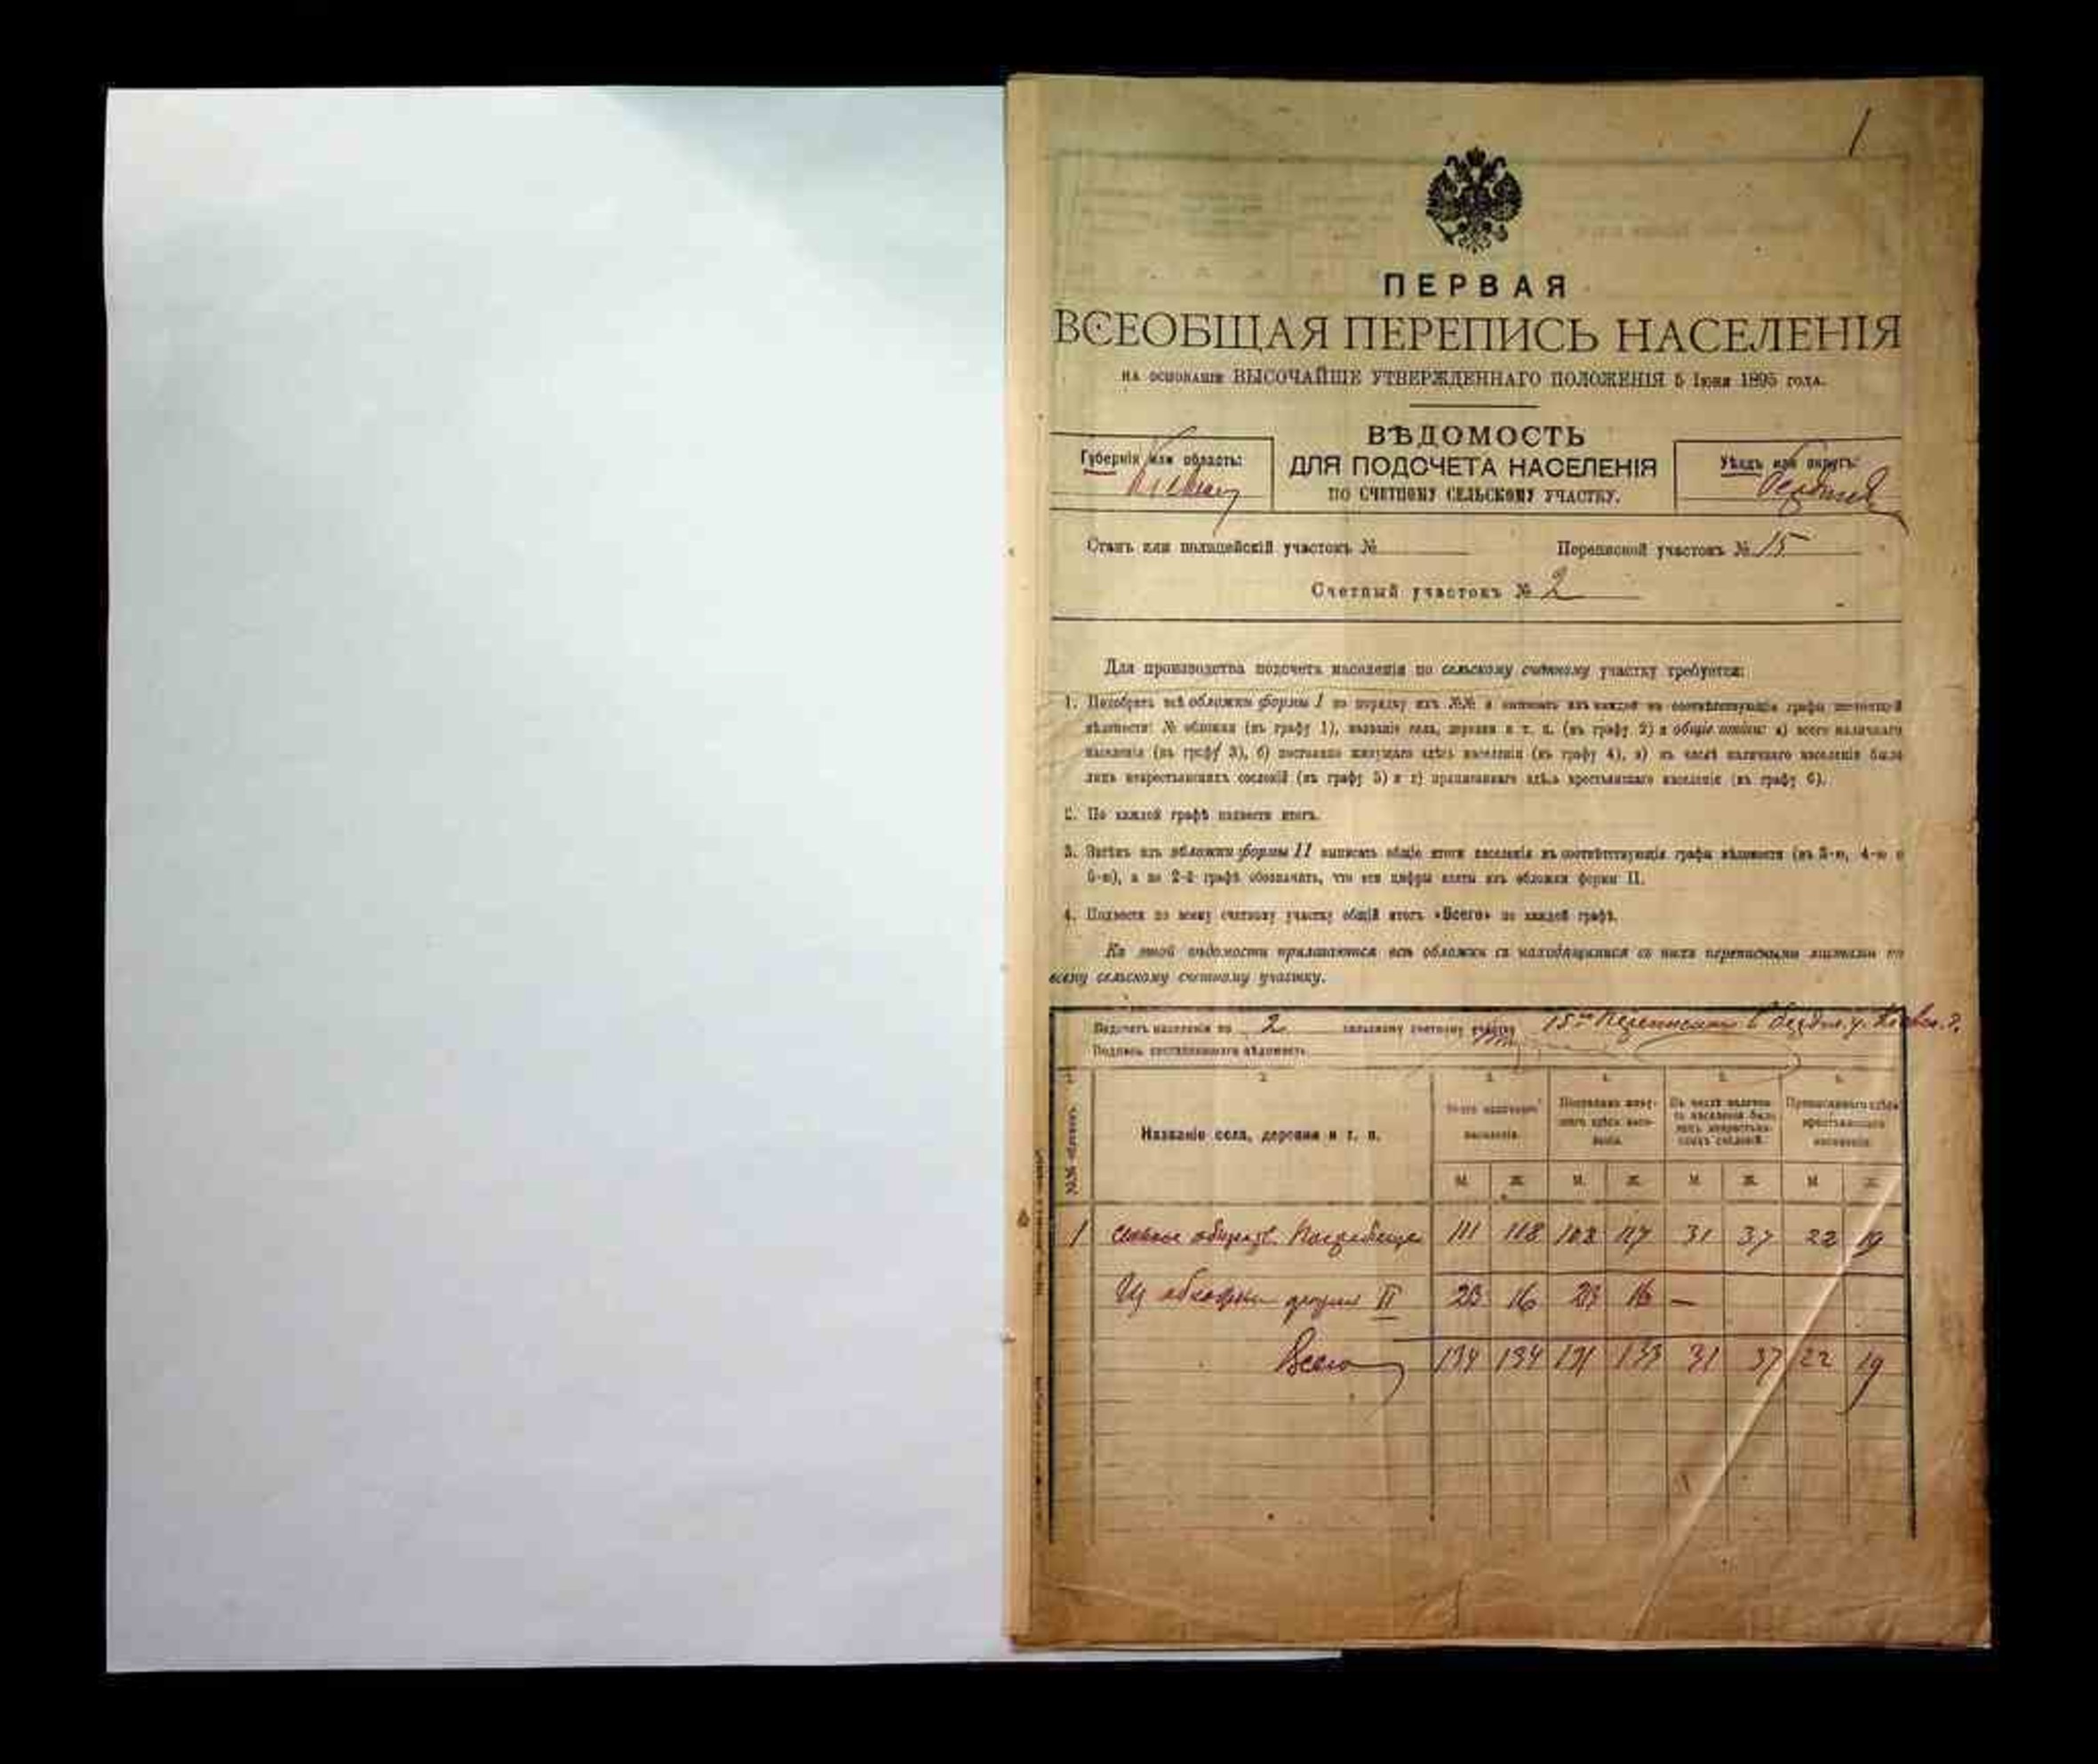 1
ПЕРВАЯ
ВСЕОБЩАЯ ПЕРЕПИСЬ НАСЕЛЕНІЯ
НА ОСНОВАНІИ ВЫСОЧАЙШЕ УТВЕРЖДЕННАГО ПОЛОЖЕНІЯ 5 Іюня 1895 ГОДА.
ВѢДОМОСТЬ
ДЛЯ ПОДСЧЕТА НАСЕЛЕНІЯ
ПО СЧЕТНОМУ СЕЛЬСКОМУ УЧАСТКУ.
Губернія или область:
Уѣздъ или округъ:
Станъ или полицейскій участокъ №
Переписной участокъ № 15
Счетный участокъ № 2
Для производства подсчета населенія по сельскому счетному участку требуется:
1. Подобрать всѣ обложки формы I по порядку ихъ №№ и выписать изъ каждой въ соотвѣтствующія графы настоящей
вѣдомости: № обложки (въ графу 1), названіе села, деревни и т. п. (въ графу 2) и общіе итоги: а) всего наличнаго
населенія (въ графу 3), б) постоянно живущаго здѣсь населенія (въ графу 4), в) въ числѣ наличнаго населенія было
лицъ некрестьянскихъ сословій (въ графу 5) и г) приписаннаго здѣсь крестьянскаго населенія (въ графу 6).
2. По каждой графѣ подвести итогъ.
3. Затѣмъ изъ обложки формы II выписать общіе итоги населенія въ соотвѣтствующія графы вѣдомости (въ 3-ю, 4-ю и
5-ю), а во 2-й графѣ обозначить, что эти цифры взяты изъ обложки формы II.
4. Подвести по всему счетному участку общій итогъ «Всего» по каждой графѣ.
Къ этой вѣдомости прилагаются всѣ обложки съ находящимися въ нихъ переписными листами по
всему сельскому счетному участку.
Подсчетъ населенія по 2 сельскому счетному участку 15
Подпись составлявшаго вѣдомость
№№ обложекъ.
2. 3. 4. 5. 6.
Названіе села, деревни и т. п.
Всего наличнаго населенія.
Постоянно живущаго здѣсь населенія.
Въ числѣ наличнаго населенія было лицъ некрестьянскихъ сословій.
Приписаннаго здѣсь крестьянскаго населенія.
М. Ж. М. Ж. М. Ж. М. Ж.
1 111 118 108 117 31 37 22 19
Из обложки формы II 23 16 23 16 —
Всего 134 134 131 133 31 37 22 19